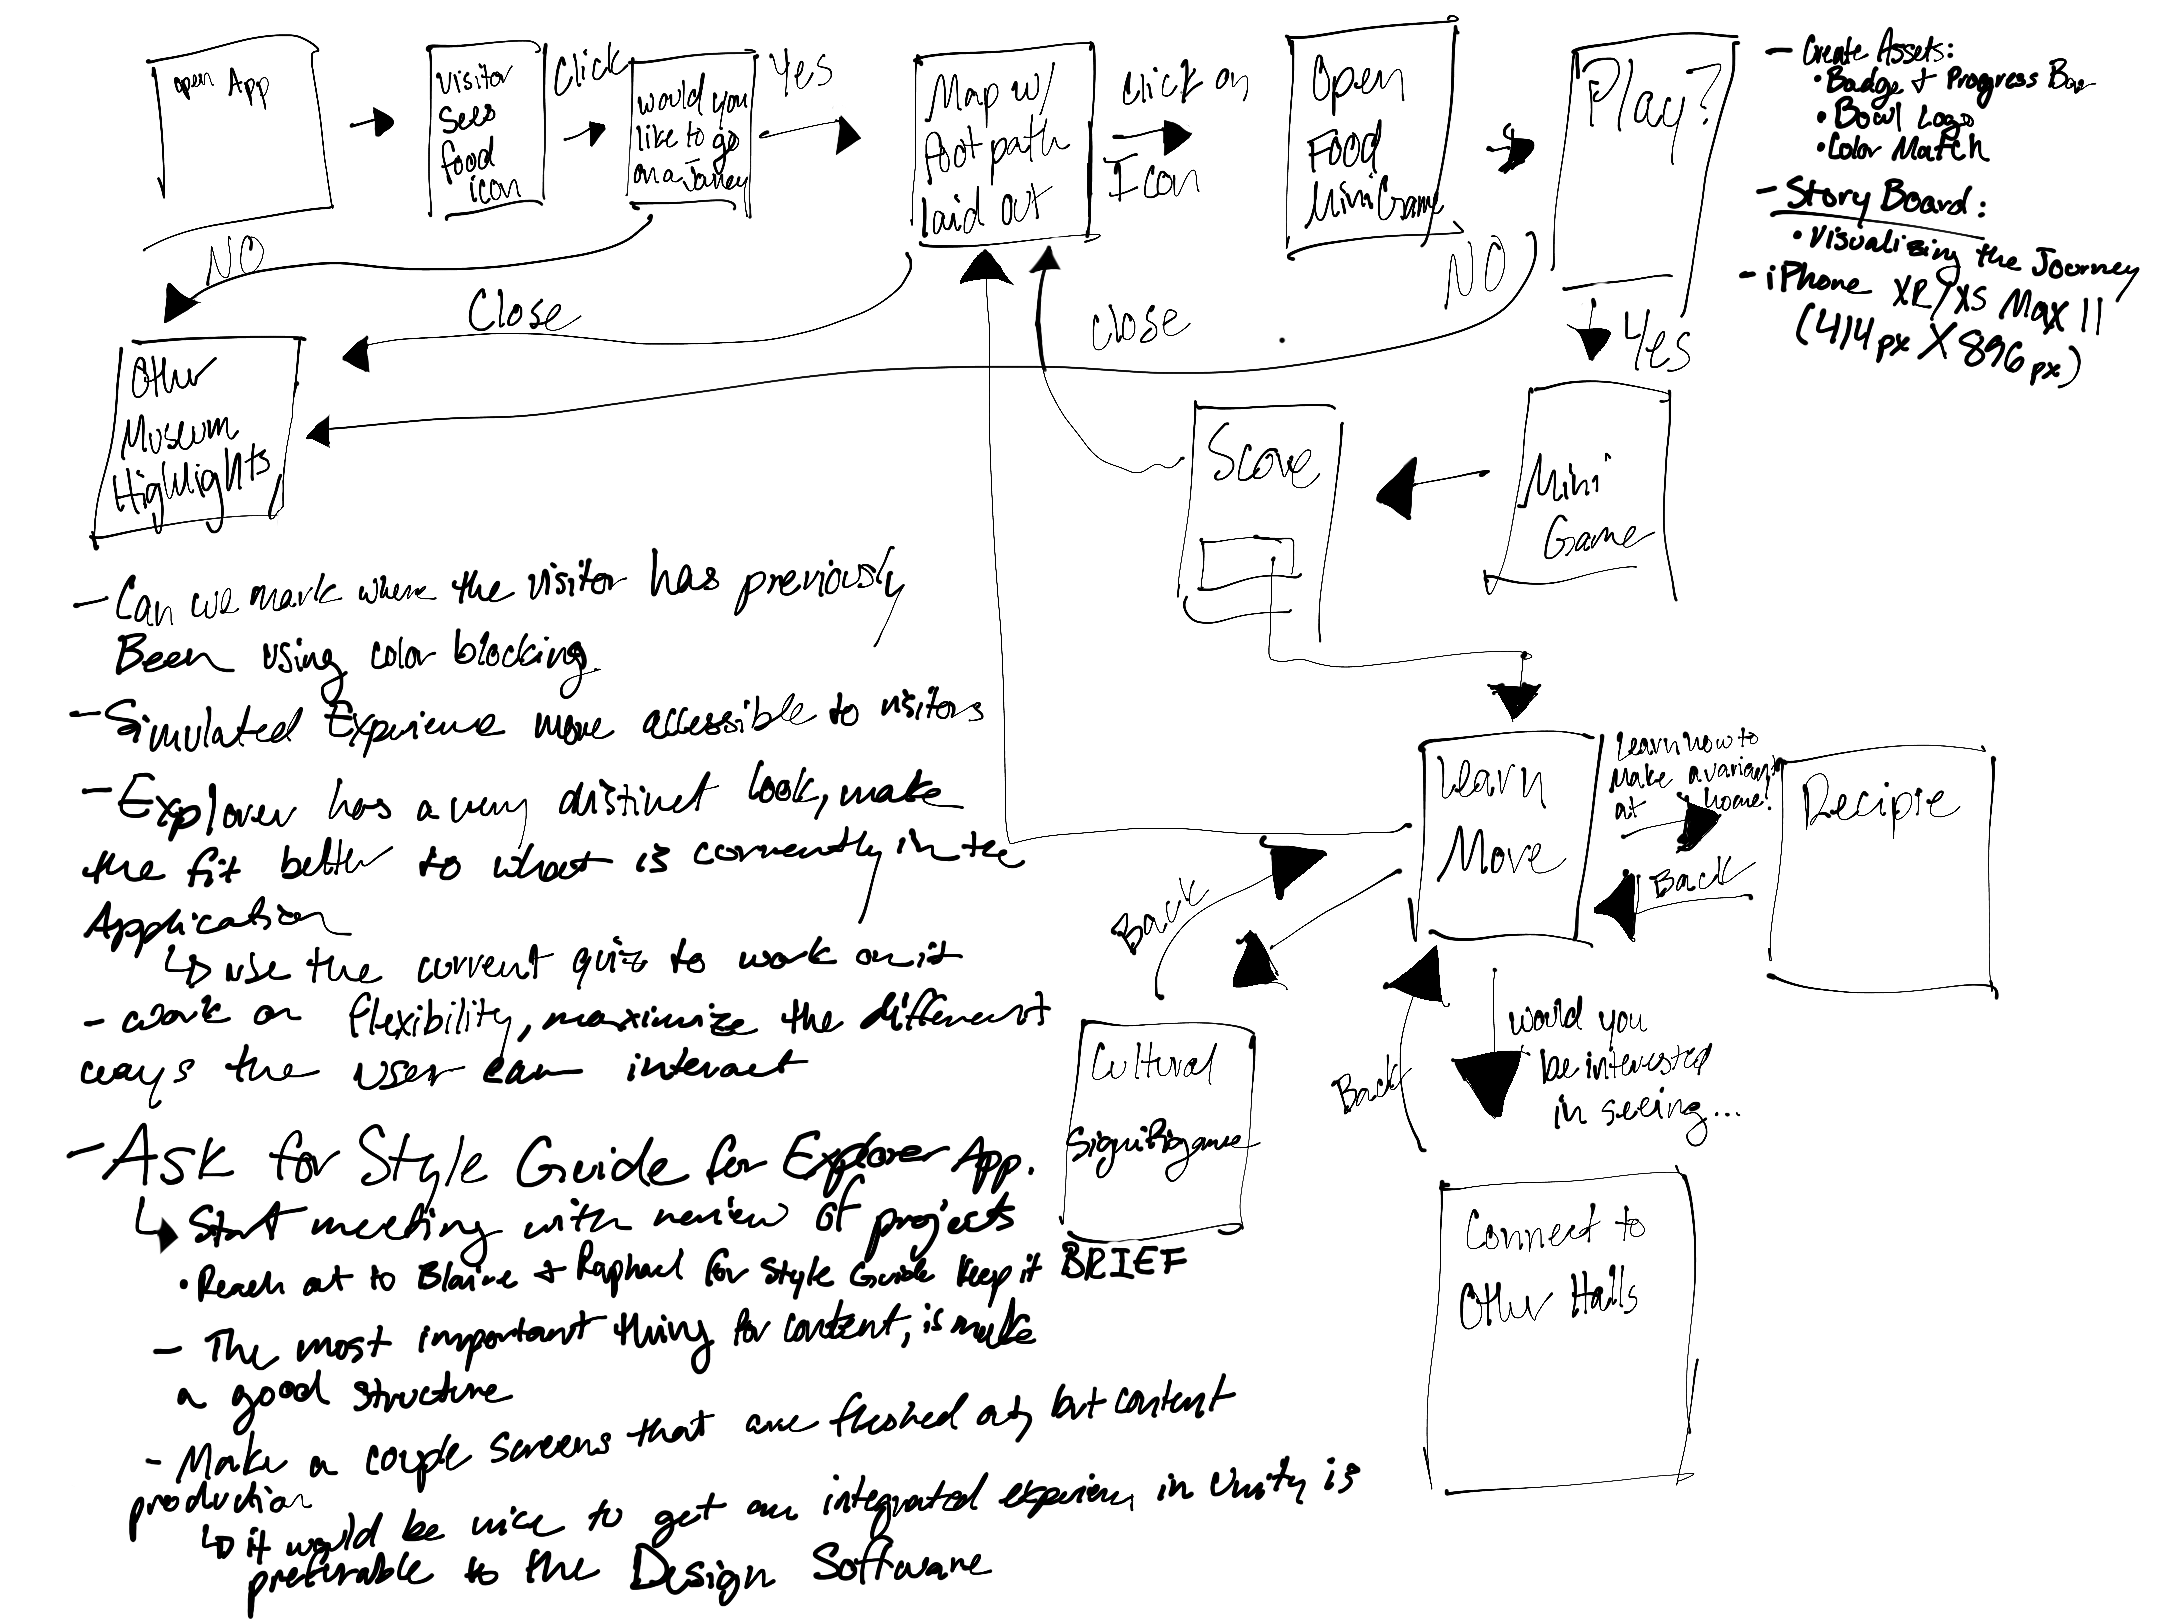 open App
Visitor
Sees
food
icon
Click
would you
like to go
on a Jorney
Yes
Map w/
foot path
laid out
Click on
Icon
Open
Food
Mini Game
Play?
NO
NO
Close
Close
Yes
Other
Museum
Highlights
Score
Mini
Game
- Create Assets:
• Badge + Progress Bar
• Bowl Logo
• Color Match
- Story Board:
• Visualizing the Journey
- iPhone XR/XS Max 11
(414px X 896px)
- Can we mark where the visitor has previously
Been using color blocking.
- Simulated Experience more accessible to visitors
- Explorer has a very distinct look, make
the fit better to what is currently in the
Application
↳ use the current quiz to work on it
- work on flexibility, maximize the different
ways the user can interact
Learn
More
Learn how to
Make a variant
at home!
Recipie
Back
Back
Back
Would you
be interested
in seeing...
Cultural
Signifigance
Connect to
Other Halls
- Ask for Style Guide for Explorer App.
↳ Start meeting with review of projects
• Reach out to Blaire + Raphael for Style Guide Keep it BRIEF
- The most important thing for content, is make
a good structure
- Make a couple screens that are fleshed out, but content
production
↳ it would be nice to get an integrated experience in Unity is
preferable to the Design Software